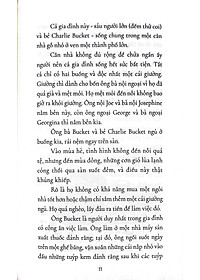 Cả gia đình này - sáu người lớn (đếm thử coi)
và bé Charlie Bucket - sống chung trong một căn
nhà gỗ nhỏ ở ven một thành phố lớn.
Căn nhà không đủ rộng để chứa ngần ấy
người nên cả gia đình sống hết sức bất tiện. Tất
cả chỉ có hai buồng và độc nhất một cái giường.
Giường thì dành cho bốn ông bà nội ngoại vì họ
đã quá già và mệt mỏi. Họ mệt mỏi đến nỗi không bao
giờ ra khỏi giường. Ông nội Joe và bà nội Josephine
nằm bên này, còn ông ngoại George và bà ngoại
Georgina thì nằm bên kia.
Ông bà Bucket và bé Charlie Bucket ngủ ở
buồng kia, rải nệm ngay trên sàn.
Vào mùa hè, tình hình không đến nỗi quá
tệ, nhưng đến mùa đông, những cơn gió lùa lạnh
cóng thổi qua sàn suốt đêm, và điều này thật
khủng khiếp.
Rõ là họ không có khả năng mua một ngôi
nhà tốt hơn hoặc thậm chí sắm thêm một cái giường.
Họ quá nghèo, lấy đâu ra tiền để làm việc đó.
Ông Bucket là người duy nhất trong gia đình
có công ăn việc làm. Ông làm ở một nhà máy sản
xuất thuốc đánh răng, tại đó, ông ngồi suốt ngày
trên một ghế băng, vặn những cái nắp nhỏ vào
đầu những tuýp kem đánh răng sau khi các tuýp
11